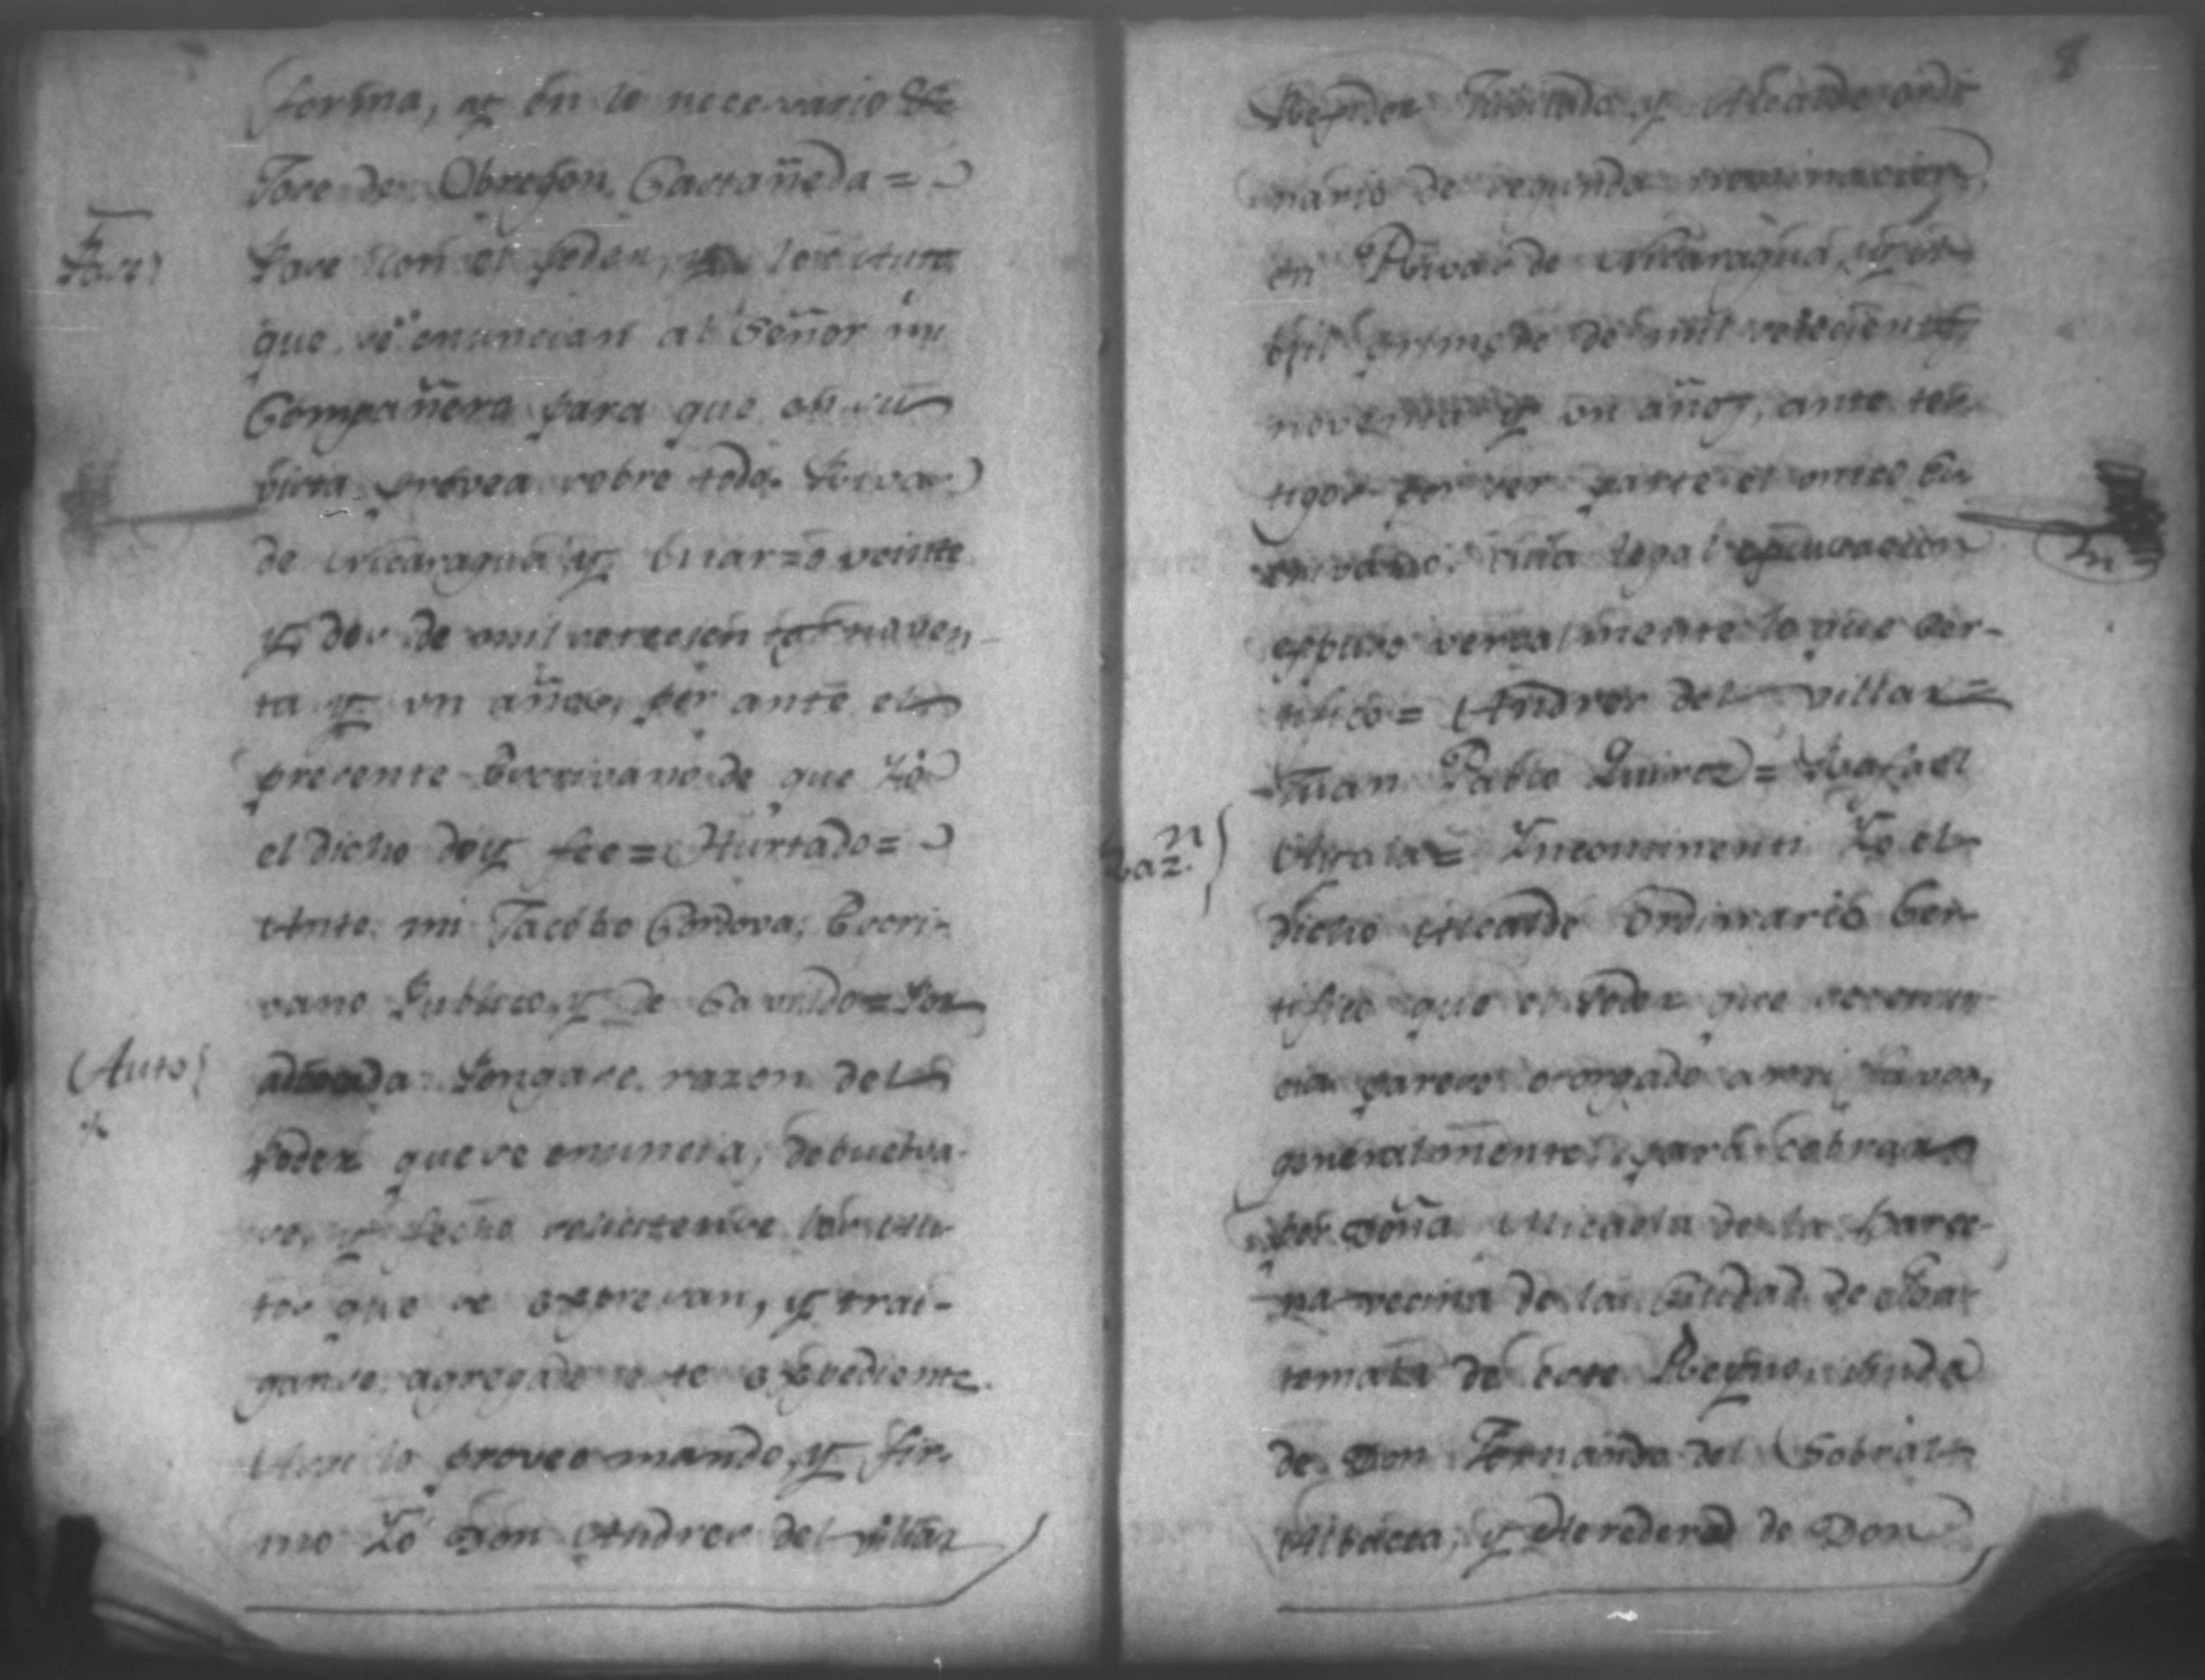 forma, y en lo necesario &c
Jose de Obregon Castañeda =
Pase
Pase con el poder, y los Autos
que se enuncian al Señor mi
Compañero para que en su
vista provea sobre todo. Rivas
de Nicaragua y Marzo veinte
y dos de mil setecientos noven-
ta y un años, por ante el
presente Escrivano de que Yo
el dicho doy fee = Hurtado =
Ante mi Jacobo Cordova, Escri-
vano Publico, y de Cavildo = Por
Auto
Pongase razon del
poder que se enuncia, debuelva-
se, y fecho solicitense los Au-
tos que se expresan, y trai-
ganse agregado este expediente.
Asi lo proveo mando, y fir-
mo Yo Don Andres del Villar
8
Regidor y Alcalde ordi-
nario de segunda nominacion
en Rivas de Nicaragua, y
Abril primero de mil setecientos
noventa y un años, ante tes-
tigos por ser parte el unico Es-
crivano. cuia legal
expuso verbalmente lo que cer-
tifico = Andres del Villar =
Juan Pablo Quiroz = Rafael
Razn.
Yncontinenti Yo el
dicho Alcalde Ordinario Cer-
tifico que el Poder que se enun-
cia parece otorgado a mi favor,
generalmente para cobrar
por Doña Micaela de la Barce-
na vecina de la Ciudad de Goa-
temala de este Reyno, viuda
de Don Fernando del Sobral
Albacea, y Heredera de Don